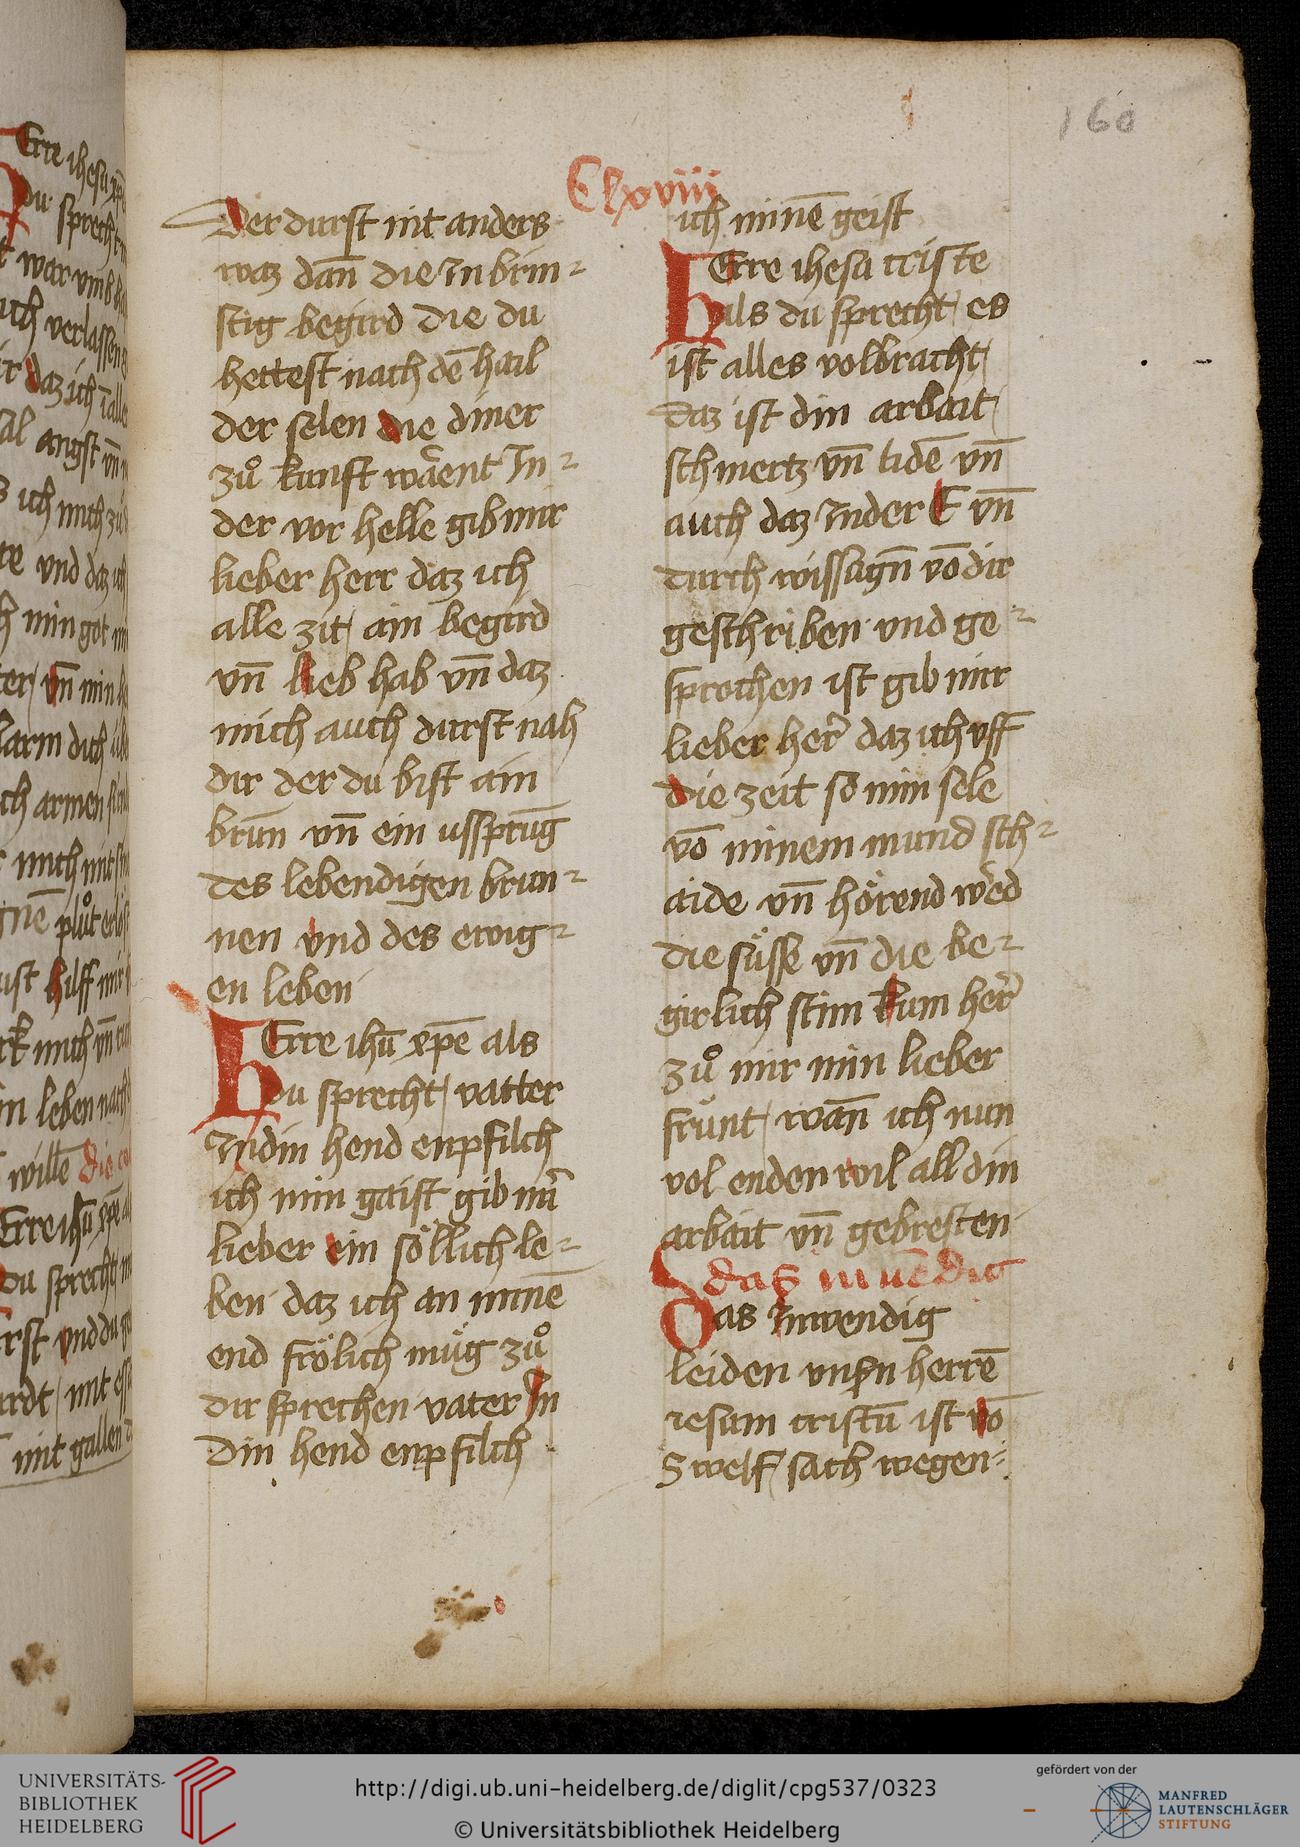 160
Clxviii
Der durst nit anders
waz dan̄ die In brin-
stig begird die du
hettest nach dē hail
der selen die diner
zuͦ kunft waͤrent In-
der vor helle gib mir
lieber herr daz ich
alle zit / ain begird
vn̄ lieb hab vn̄ daz
mich auch durst nah
dir der du bist ain
brūn vn̄ ein ussprūg
des lebendigen brun-
nen vnd des ewig-
en leben
HErre ihū xp̄e als
du sprecht / vatter
In din hend enpfilch
ich min gaist gib mir̄
lieber ein soͤllich le-
ben daz ich an minē
end froͤlich muͤg zuͦ
dir sprechen vater In
Din hend enpfilch
ich minē geist
HErre ihesu criste
als du sprecht / es
ist alles volbracht /
daz ist din arbait /
schmertz vn̄ lidē vn̄
auch daz In der E vn̄
durch wissagn̄ vō dir
geschriben vnd ge-
sprochen ist gib mir
lieber her̄ daz ich vff
die zeit so min sele
vō minem mund sch-
aide vn̄ hoͤrend werd
die suͤsse vn̄ die be-
girlich stim kum her̄
zuͦ mir min lieber
fruͤnt / wan̄ ich nun
vol enden wil all din
arbait vn̄ gebresten
das in uēdig
Das Inwendig
leiden vnsern herrē
iesum cristū ist vō
Swelf / sach wegen
Erre ihesu xpē
du sprecht
war vmb
ich verlassen
daz ich
angst vn̄
ich mich zuͦ
vnd daz ich
min got
vn̄ min
dich
armen
mich mit
pluͦt
hilff mir
mich vn̄
leben nach
willē Die
Erre ihū xp̄e
du sprecht
vnd du
mit
mit gallen
UNIVERSITÄTS-
BIBLIOTHEK
HEIDELBERG
http://digi.ub.uni-heidelberg.de/diglit/cpg537/0323
© Universitätsbibliothek Heidelberg
gefördert von der
MANFRED
LAUTENSCHLÄGER
STIFTUNG